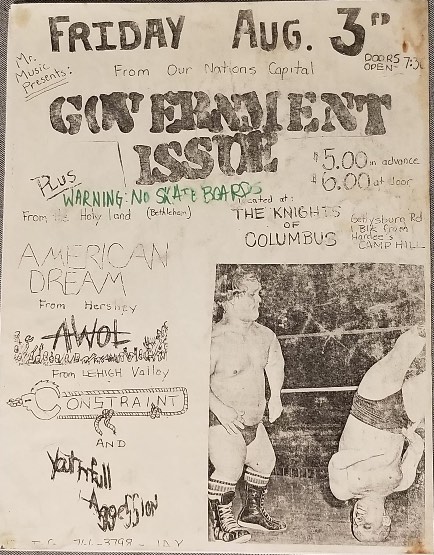 FRIDAY AUG. 3RD
Mr. Music Presents:
DOORS OPEN- 7:30
From Our Nations Capital
GOVERNMENT
ISSUE
$5.00 in advance
$6.00 at door
PLUS
WARNING: NO SKATE BOARDS
From the Holy land (Bethlehem)
located at:
THE KNIGHTS
OF
COLUMBUS
Gettysburg Rd
1 Blk from
Hardee's
CAMP HILL
AMERICAN
DREAM
From Hershey
AWOL
From LEHIGH Valley
CONSTRAINT
AND
Youthfull
Aggession